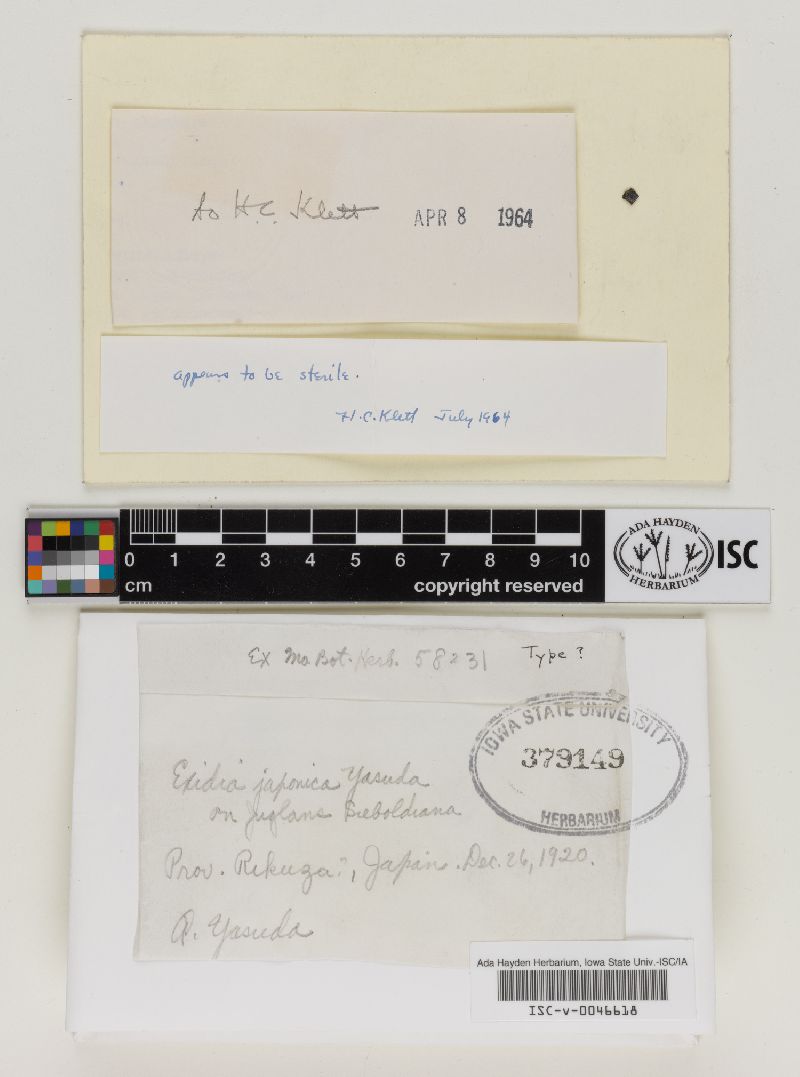 to H.C. Klett APR 8 1964
appears to be sterile.
H.C. Klett July 1964
0 1 2 3 4 5 6 7 8 9 10
cm copyright reserved
ADA HAYDEN
HERBARIUM
ISC
Ex Mo. Bot. Herb. 58231 Type?
IOWA STATE UNIVERSITY
379149
HERBARIUM
Exidia japonica Yasuda
on Juglans Sieboldiana
Prov. Rikuza?, Japan. Dec. 26, 1920.
A. Yasuda
Ada Hayden Herbarium, Iowa State Univ.-ISC/IA
ISC-v-0046618